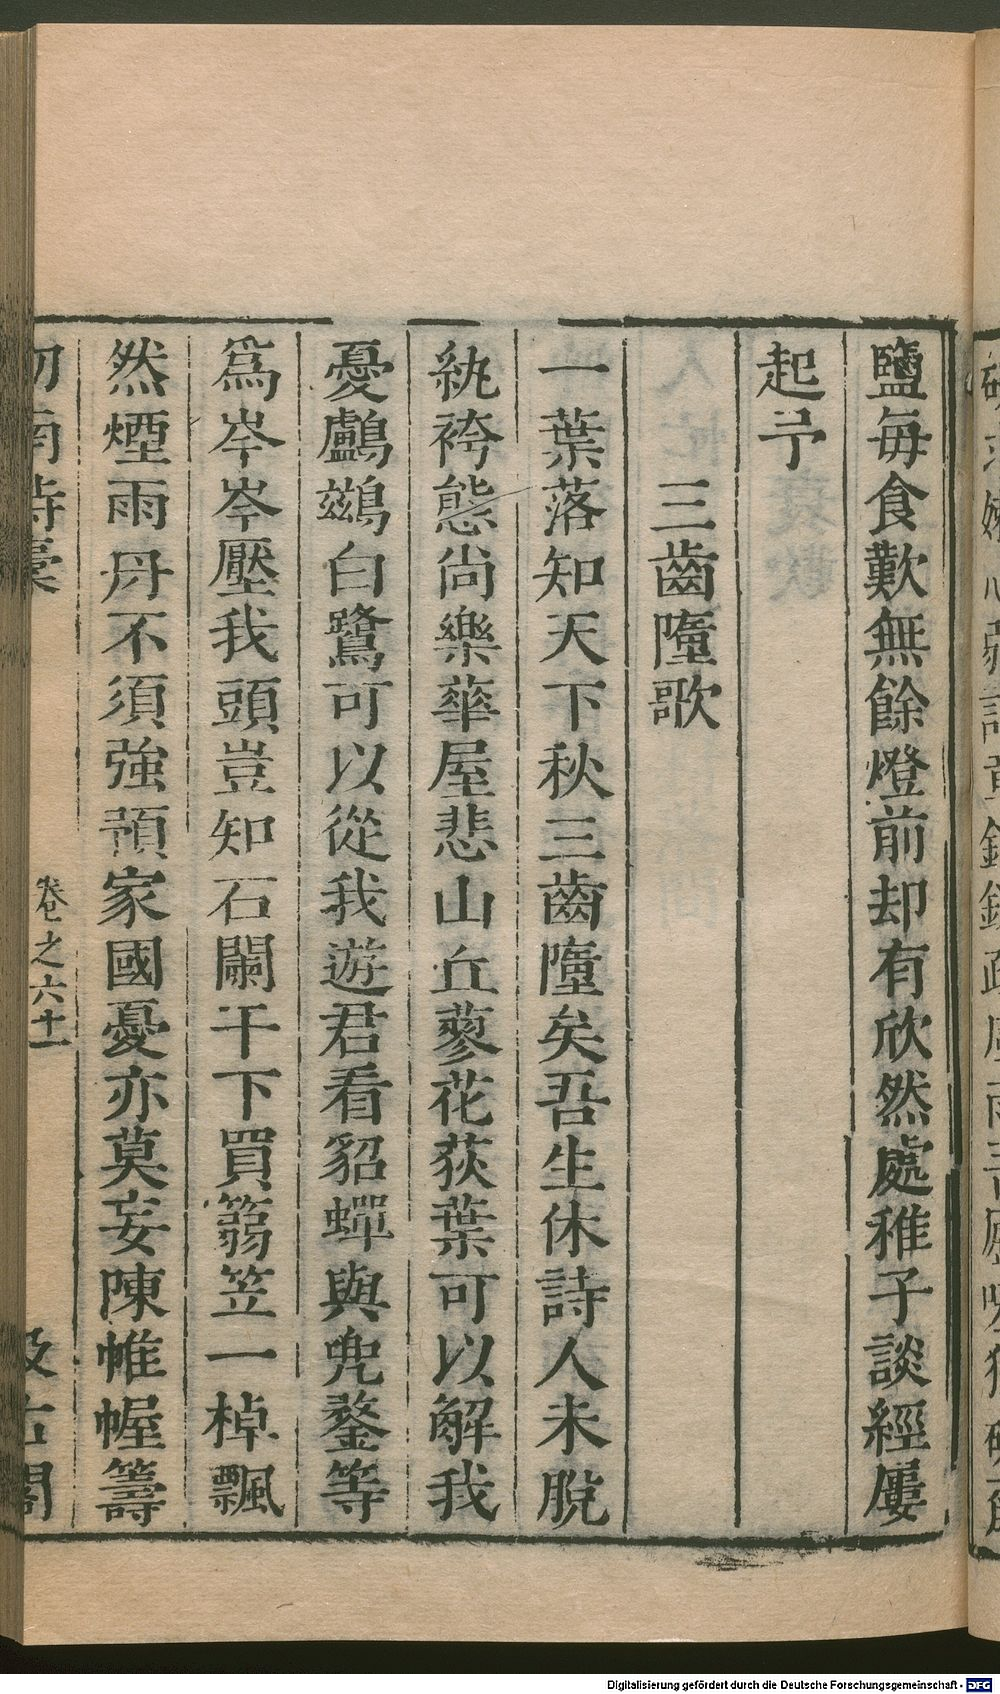 鹽每食歎無餘燈前却有欣然處稚子談經屢
起予
三齒墮歌
一葉落知天下秋三齒墮矣吾生休詩人未脫
紈袴態尚樂華屋悲山丘蓼花荻葉可以解我
憂鸕鷀白鷺可以從我遊君看貂蟬與兜鍪等
爲岑岑壓我頭豈知石闌干下買篛笠一棹飄
然煙雨舟不須強預家國憂亦莫妄陳帷幄籌
劒南詩稾
卷之六十一
汲古閣
Digitalisierung gefördert durch die Deutsche Forschungsgemeinschaft - DFG